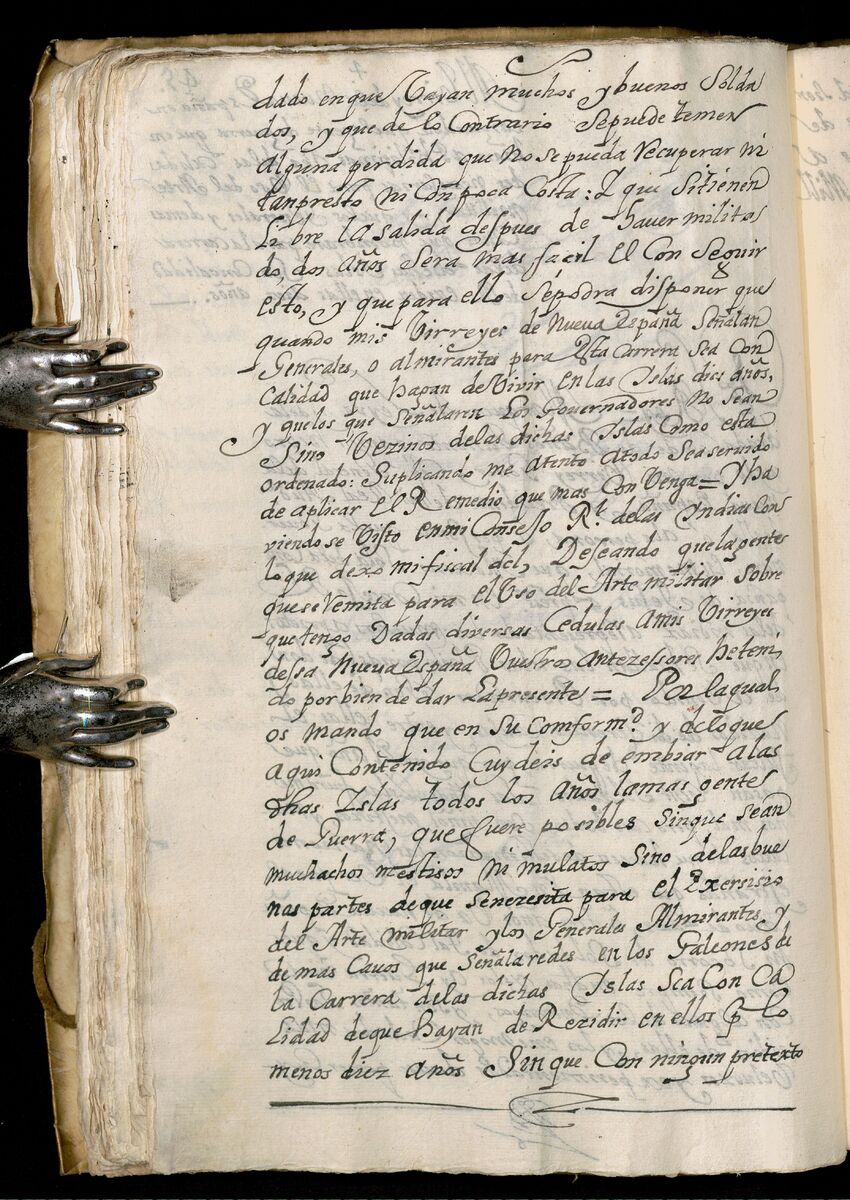 dado en que Vayan muchos y buenos Solda
dos, y que de lo Contrario Sepuede temer
alguna perdida que no sepueda Recuperar ni
tanpresto ni Con poca Costa: Y que Sitienen
Libre la salida despues de haver milita
do, dos años Sera mas facil el Con Seguir
esto, y que para ello Sepodra disponer que
quando mis Virreyes de Nueva España Señalan
Generales, o almirantes para Esta Carrera Sea Con
Calidad que hagan de Vivir en las Islas dies años,
y quelos que Señalaren Los Governadores no Sean
Sino Vezinos delas dichas Islas Como esta
ordenado: Suplicando me atento atodo Seaservido
de aplicar el Remedio que mas Con Venga = Y ha
viendose Visto en mi Consejo Rl. delas Yndias Con
loque dexo mi fiscal del, Deseando quelagente
que se Remita para el Uso del Arte militar Sobre
quetengo Dadas diversas Cedulas amis Virreyes
dessa Nueva España Vuestros antezessores heteni
do por bien de dar Lapresente = Por laqual
os mando que en Su Comformd. y deloque
aqui Contenido Cuydeis de embiar a las
dhas Islas todos los años lamas gente
de Guerra, que fuere posibles Sinque Sean
muchachos mestisos ni mulatos Sino delas bue
nas partes deque Senezesita para el Exersisio
del Arte militar ylos Generales Almirantes, y
de mas Cavos que Señalaredes en los Galeones de
la Carrera delas dichas Islas Sea Con Ca
Lidad deque hayan de Rezidir en ellos p lo
menos diez años Sin que Con ningun pretexto